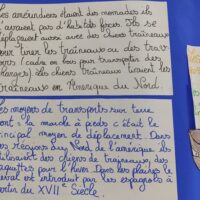 Les amérindiens étaient des nomades ils
n'avaient pas d'habitats fixes. Ils se
déplaçaient aussi avec des chiens traîneaux
pour tirer les traîneaux ou des trav
ois (cadre en bois pour transporter des
charges). Les chiens traîneaux tiraient les
traîneaux en Amérique du Nord.
Les moyens de transports sur terre
sont : la marche à pieds c'était le
principal moyen de déplacement. Dans
les régions au Nord de l'amérique ils
utilisaient des chiens de traîneaux, des
raquettes pour l'hiver. Dans les plaines le
cheval est introduit par les espagnols à
partir du XVIIe Siècle.